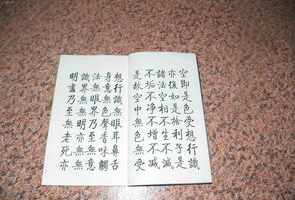 空即是色受想行識
亦復如是舍利子是
諸法空相不生不滅
不垢不净不增不減
是故空中無色無受
想行識無眼耳鼻舌
身意無色聲香味觸
法無眼界乃至無意
識界無無明亦無無
明盡乃至無老死亦